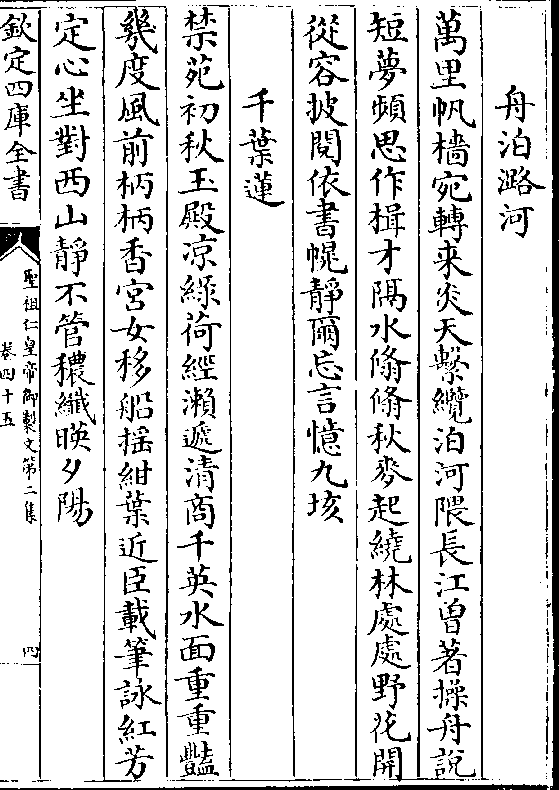 舟泊潞河
萬里帆檣宛轉来炎天繫纜泊河隈長江曽著操舟説
短夢頻思作楫才隔水翛翛秋麥起繞林處處野花開
從容披閲依書幌静爾忘言憶九垓
千葉蓮
禁苑初秋玉殿凉緑荷經瀬遞清商千英水面重重豔
幾度風前柄柄香宮女移船揺紺葉近臣載筆詠紅芳
定心坐對西山静不管穠纎暎夕陽
欽定四庫全書
聖祖仁皇帝御製文第二集
卷四十五
四